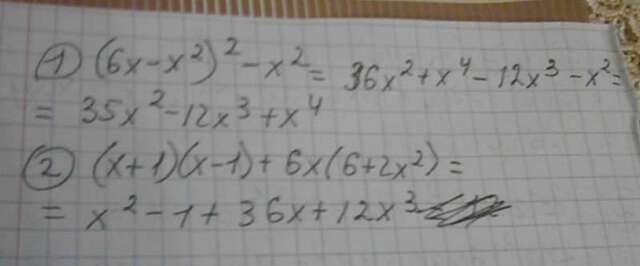 ① (6x-x²)²-x²= 36x²+x⁴-12x³-x²=
= 35x²-12x³+x⁴
② (x+1)(x-1)+6x(6+2x²)=
= x²-1+36x+12x³